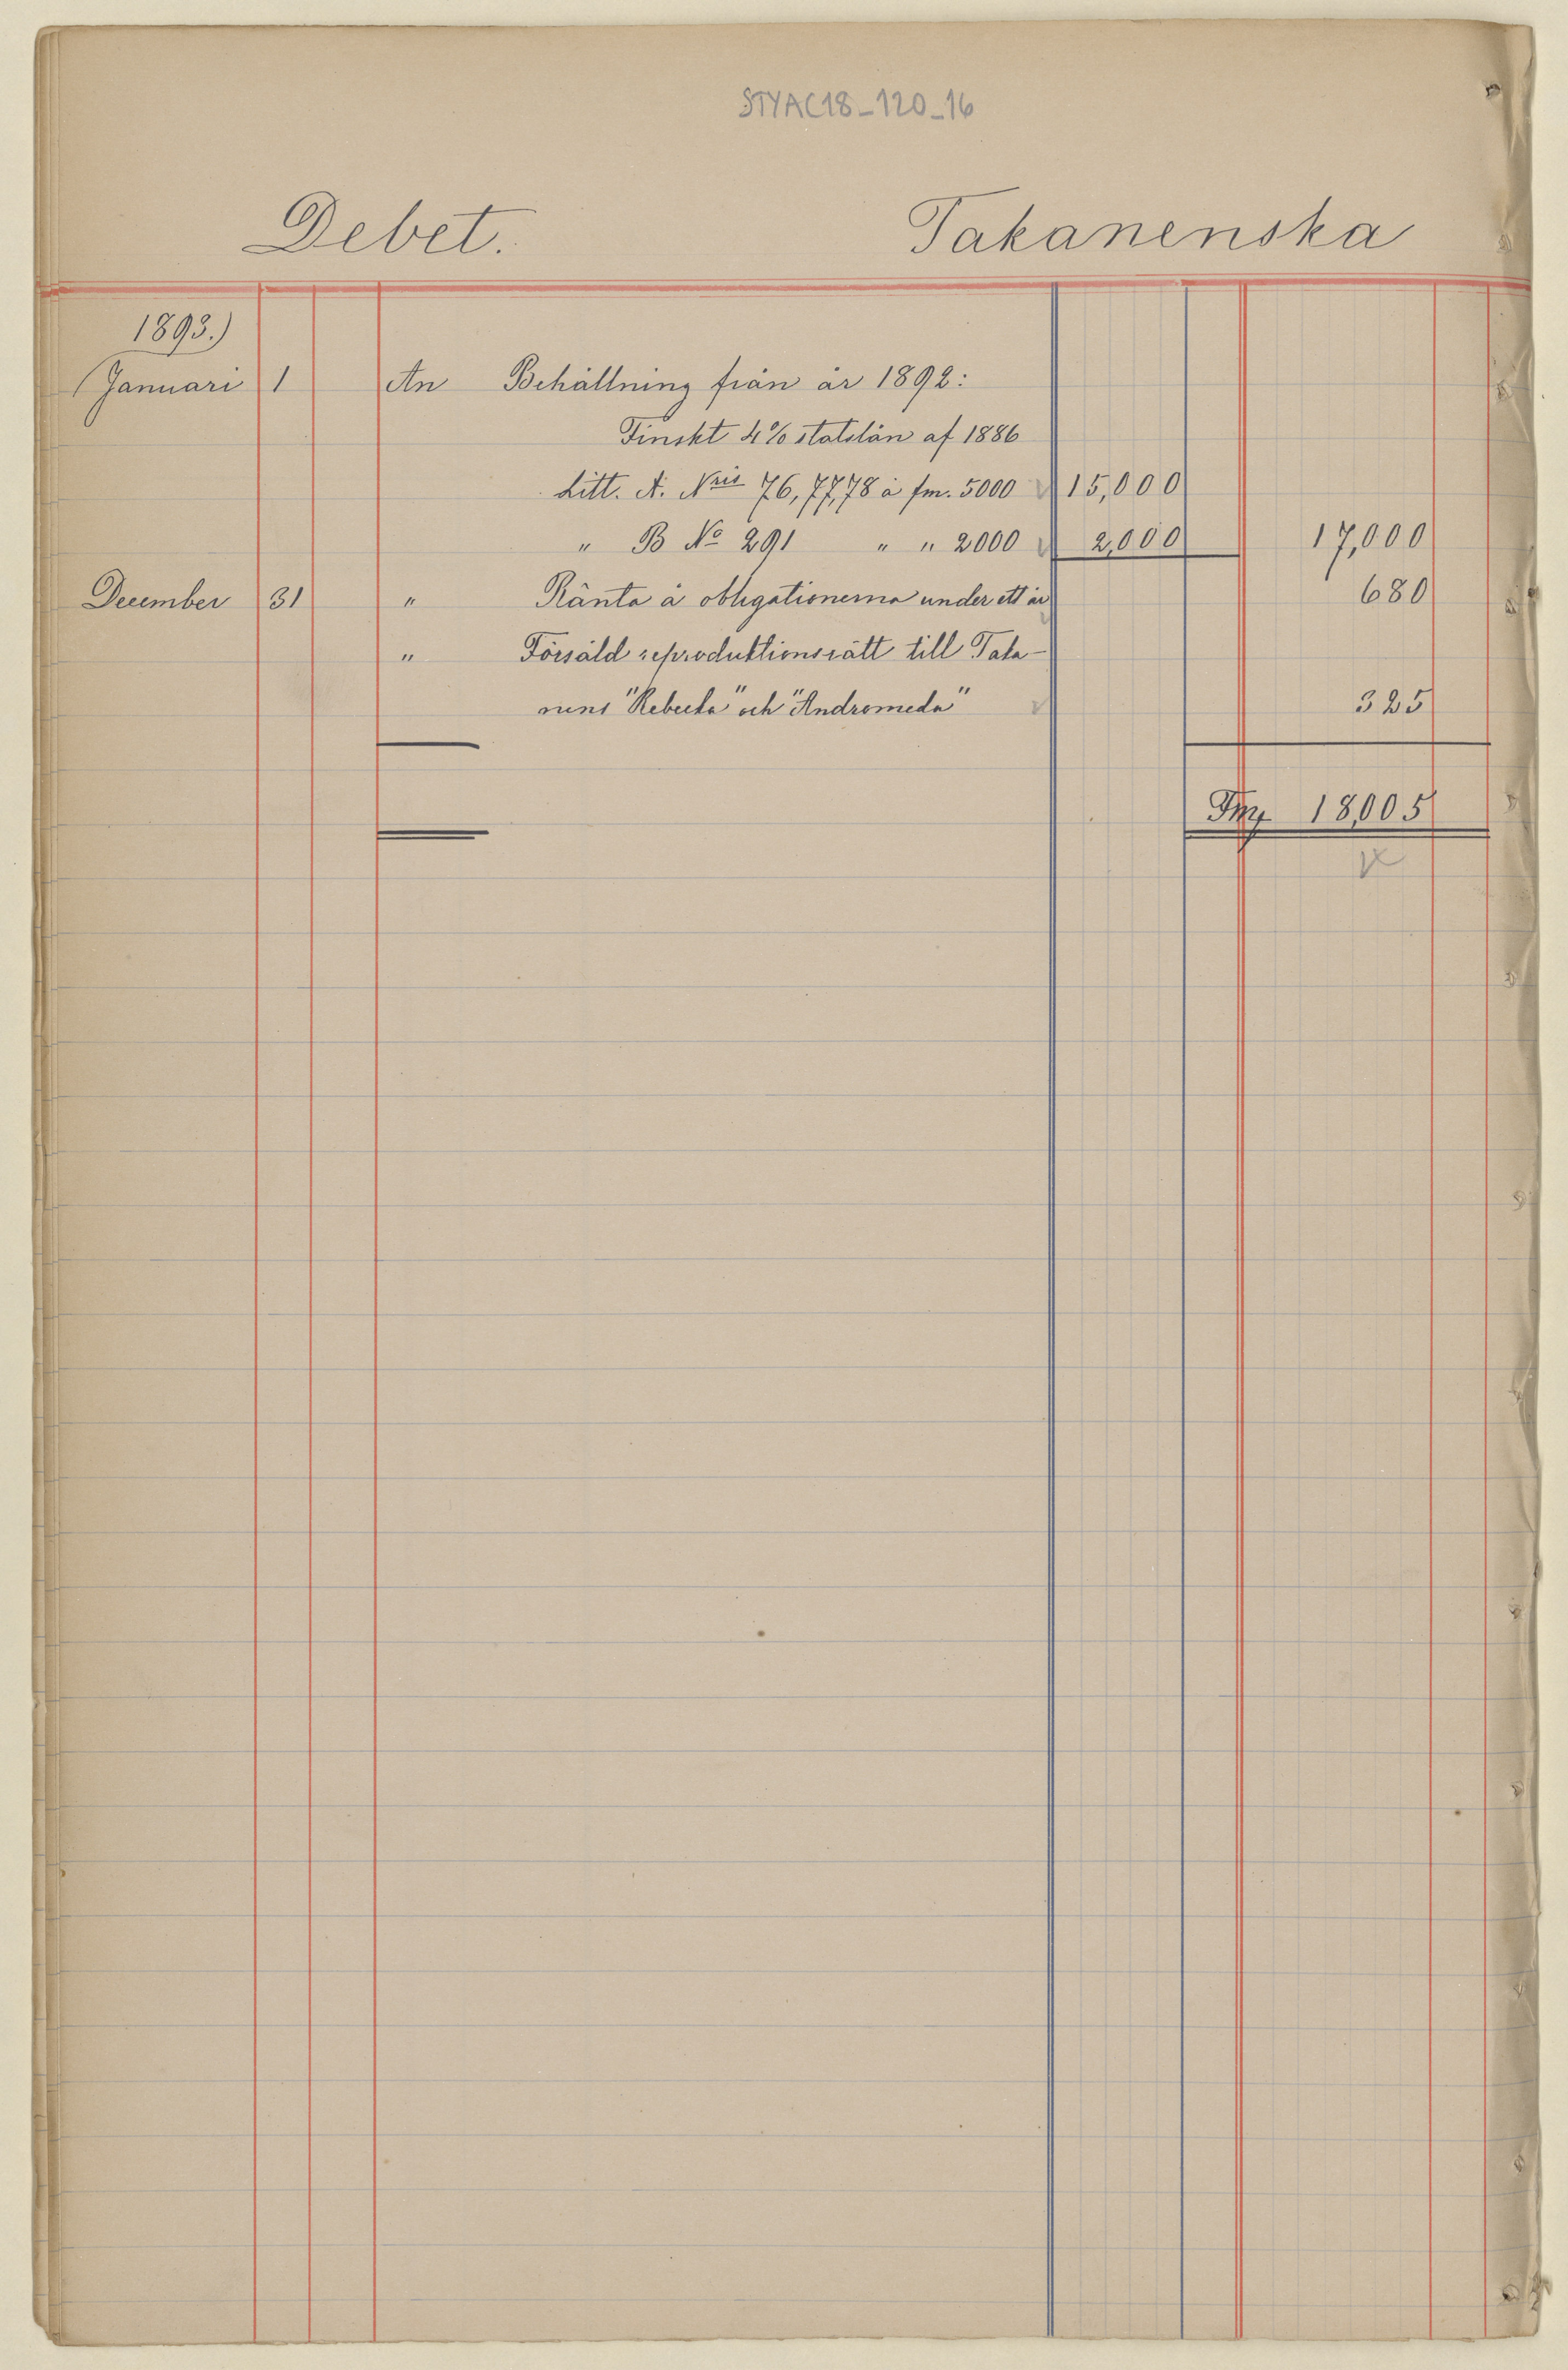 STYAC18_120_16
Debet. Takanenska
1893.)
Januari 1 An Behållning från år 1892:
Finskt 4% statslån af 1886
Litt. A. Nris 76, 77, 78 à fm. 5000 15,000
" B No 291 " " 2000 2,000 17,000
December 31 " Ränta å obligationerna under ett år 680
" Försåld reproduktionsrätt till Taka-
nens "Rebecka" och "Andromeda" 325
Fmk 18,005